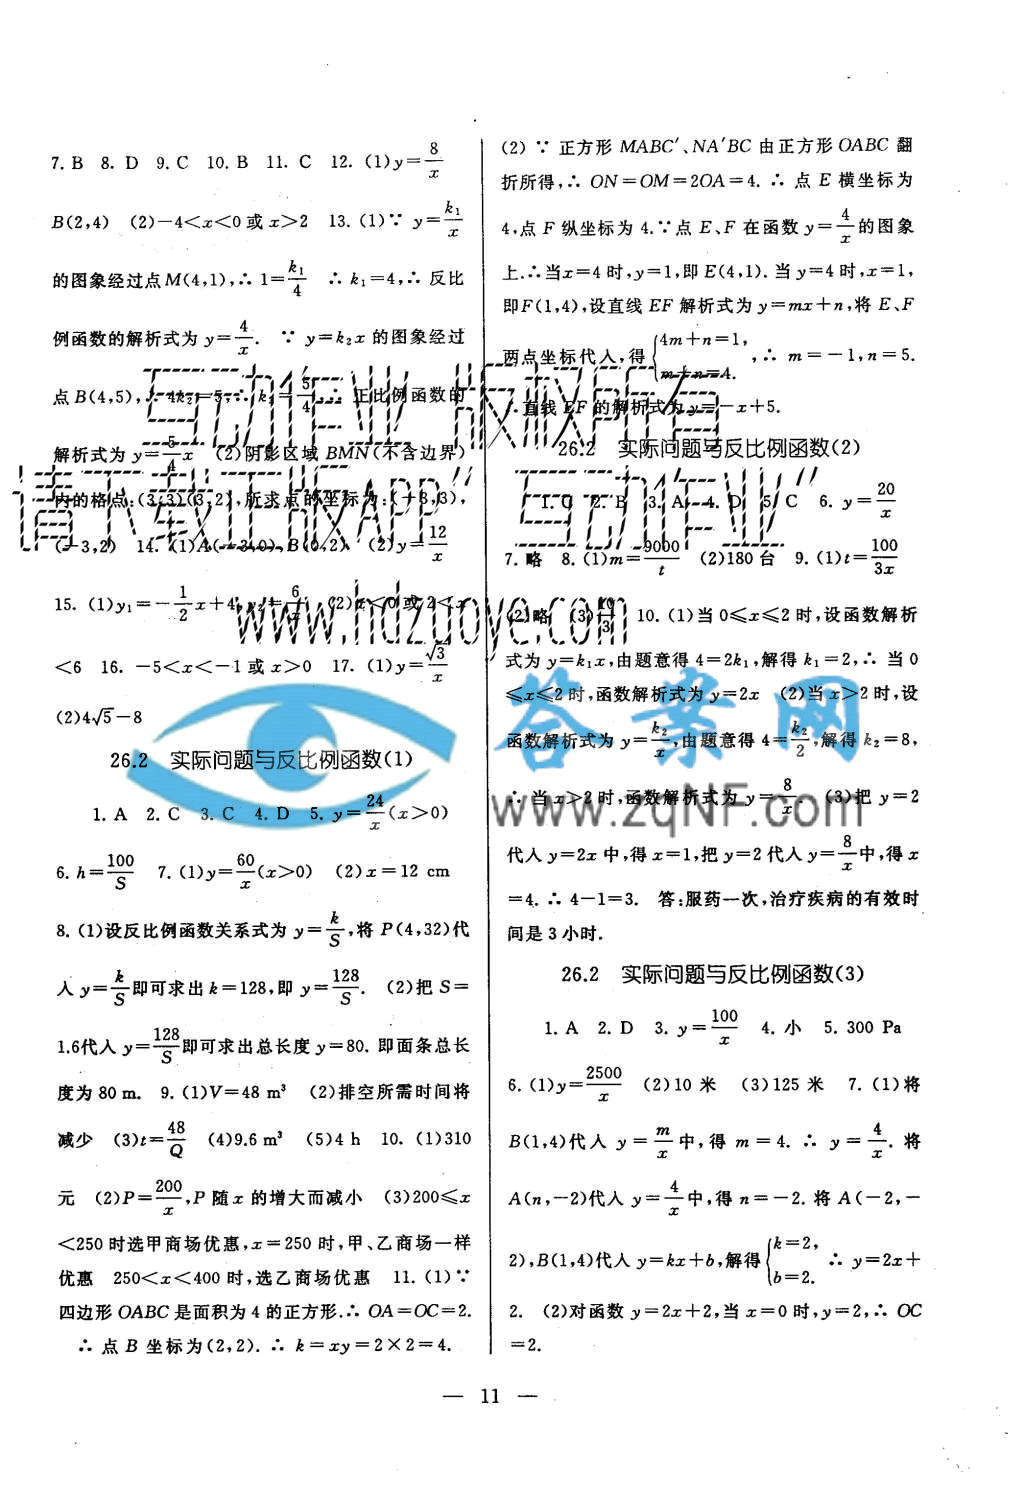 7. B 8. D 9. C 10. B 11. C 12. (1)y=8/x
B(2,4) (2)-4<x<0或x>2 13. (1)∵ y=k₁/x
的图象经过点M(4,1),∴ 1=k₁/4 ∴ k₁=4,∴ 反比
例函数的解析式为 y=4/x. ∵ y=k₂x 的图象经过
点 B(4,5),∴ 4k₂=5,∴ k₂=5/4,∴ 正比例函数的
解析式为 y=5/4 x (2)阴影区域 BMN(不含边界)
内的格点:(3,3)(3,2),所求点的坐标为:(-3,3),
(-3,2) 14. (1)A(-3,0),B(0,2) (2)y=12/x
15. (1)y₁=-1/2 x+4,y₂=6/x (2)x<0或2<x
<6 16. -5<x<-1或x>0 17. (1)y=√3/x
(2)4√5-8
26.2 实际问题与反比例函数(1)
1. A 2. C 3. C 4. D 5. y=24/x(x>0)
6. h=100/S 7. (1)y=60/x(x>0) (2)x=12 cm
8. (1)设反比例函数关系式为 y=k/S,将 P(4,32)代
入 y=k/S即可求出 k=128,即 y=128/S. (2)把 S=
1.6代入 y=128/S即可求出总长度 y=80. 即面条总长
度为 80 m. 9. (1)V=48 m³ (2)排空所需时间将
减少 (3)t=48/Q (4)9.6 m³ (5)4 h 10. (1)310
元 (2)P=200/x,P 随 x 的增大而减小 (3)200≤x
<250时选甲商场优惠,x=250时,甲、乙商场一样
优惠 250<x<400时,选乙商场优惠 11. (1)∵
四边形 OABC 是面积为 4 的正方形.∴ OA=OC=2.
∴ 点 B 坐标为(2,2). ∴ k=xy=2×2=4.
(2) ∵ 正方形 MABC′、NA′BC 由正方形 OABC 翻
折所得,∴ ON=OM=2OA=4. ∴ 点 E 横坐标为
4,点 F 纵坐标为 4.∵点 E、F 在函数 y=4/x 的图象
上.∴当x=4时,y=1,即 E(4,1). 当 y=4 时,x=1,
即F(1,4),设直线 EF 解析式为 y=mx+n,将 E、F
两点坐标代入,得{4m+n=1, m+n=4. ,∴ m=-1,n=5.
∴直线 EF 的解析式为 y=-x+5.
26.2 实际问题与反比例函数(2)
1. C 2. B 3. A 4. D 5. C 6. y=20/x
7. 略 8. (1)m=9000/t (2)180台 9. (1)t=100/3x
(2)略 (3)10/3 10. (1)当 0≤x≤2 时,设函数解析
式为 y=k₁x,由题意得 4=2k₁,解得 k₁=2,∴ 当 0
≤x≤2 时,函数解析式为 y=2x (2)当 x>2 时,设
函数解析式为 y=k₂/x,由题意得 4=k₂/2,解得 k₂=8,
∴ 当 x>2 时,函数解析式为 y=8/x. (3)把 y=2
代入 y=2x 中,得 x=1,把 y=2 代入 y=8/x中,得 x
=4. ∴ 4-1=3. 答:服药一次,治疗疾病的有效时
间是 3 小时.
26.2 实际问题与反比例函数(3)
1. A 2. D 3. y=100/x 4. 小 5. 300 Pa
6. (1)y=2500/x (2)10 米 (3)125 米 7. (1)将
B(1,4)代入 y=m/x中,得 m=4. ∴ y=4/x. 将
A(n,-2)代入 y=4/x中,得 n=-2. 将 A(-2,-
2),B(1,4)代入 y=kx+b,解得{k=2, b=2. ∴ y=2x+
2. (2)对函数 y=2x+2,当 x=0 时,y=2,∴ OC
=2.
— 11 —
互动作业 版权所有
请下载正版APP“互动作业”
www.hdzuoye.com
答案网
www.zqNF.com